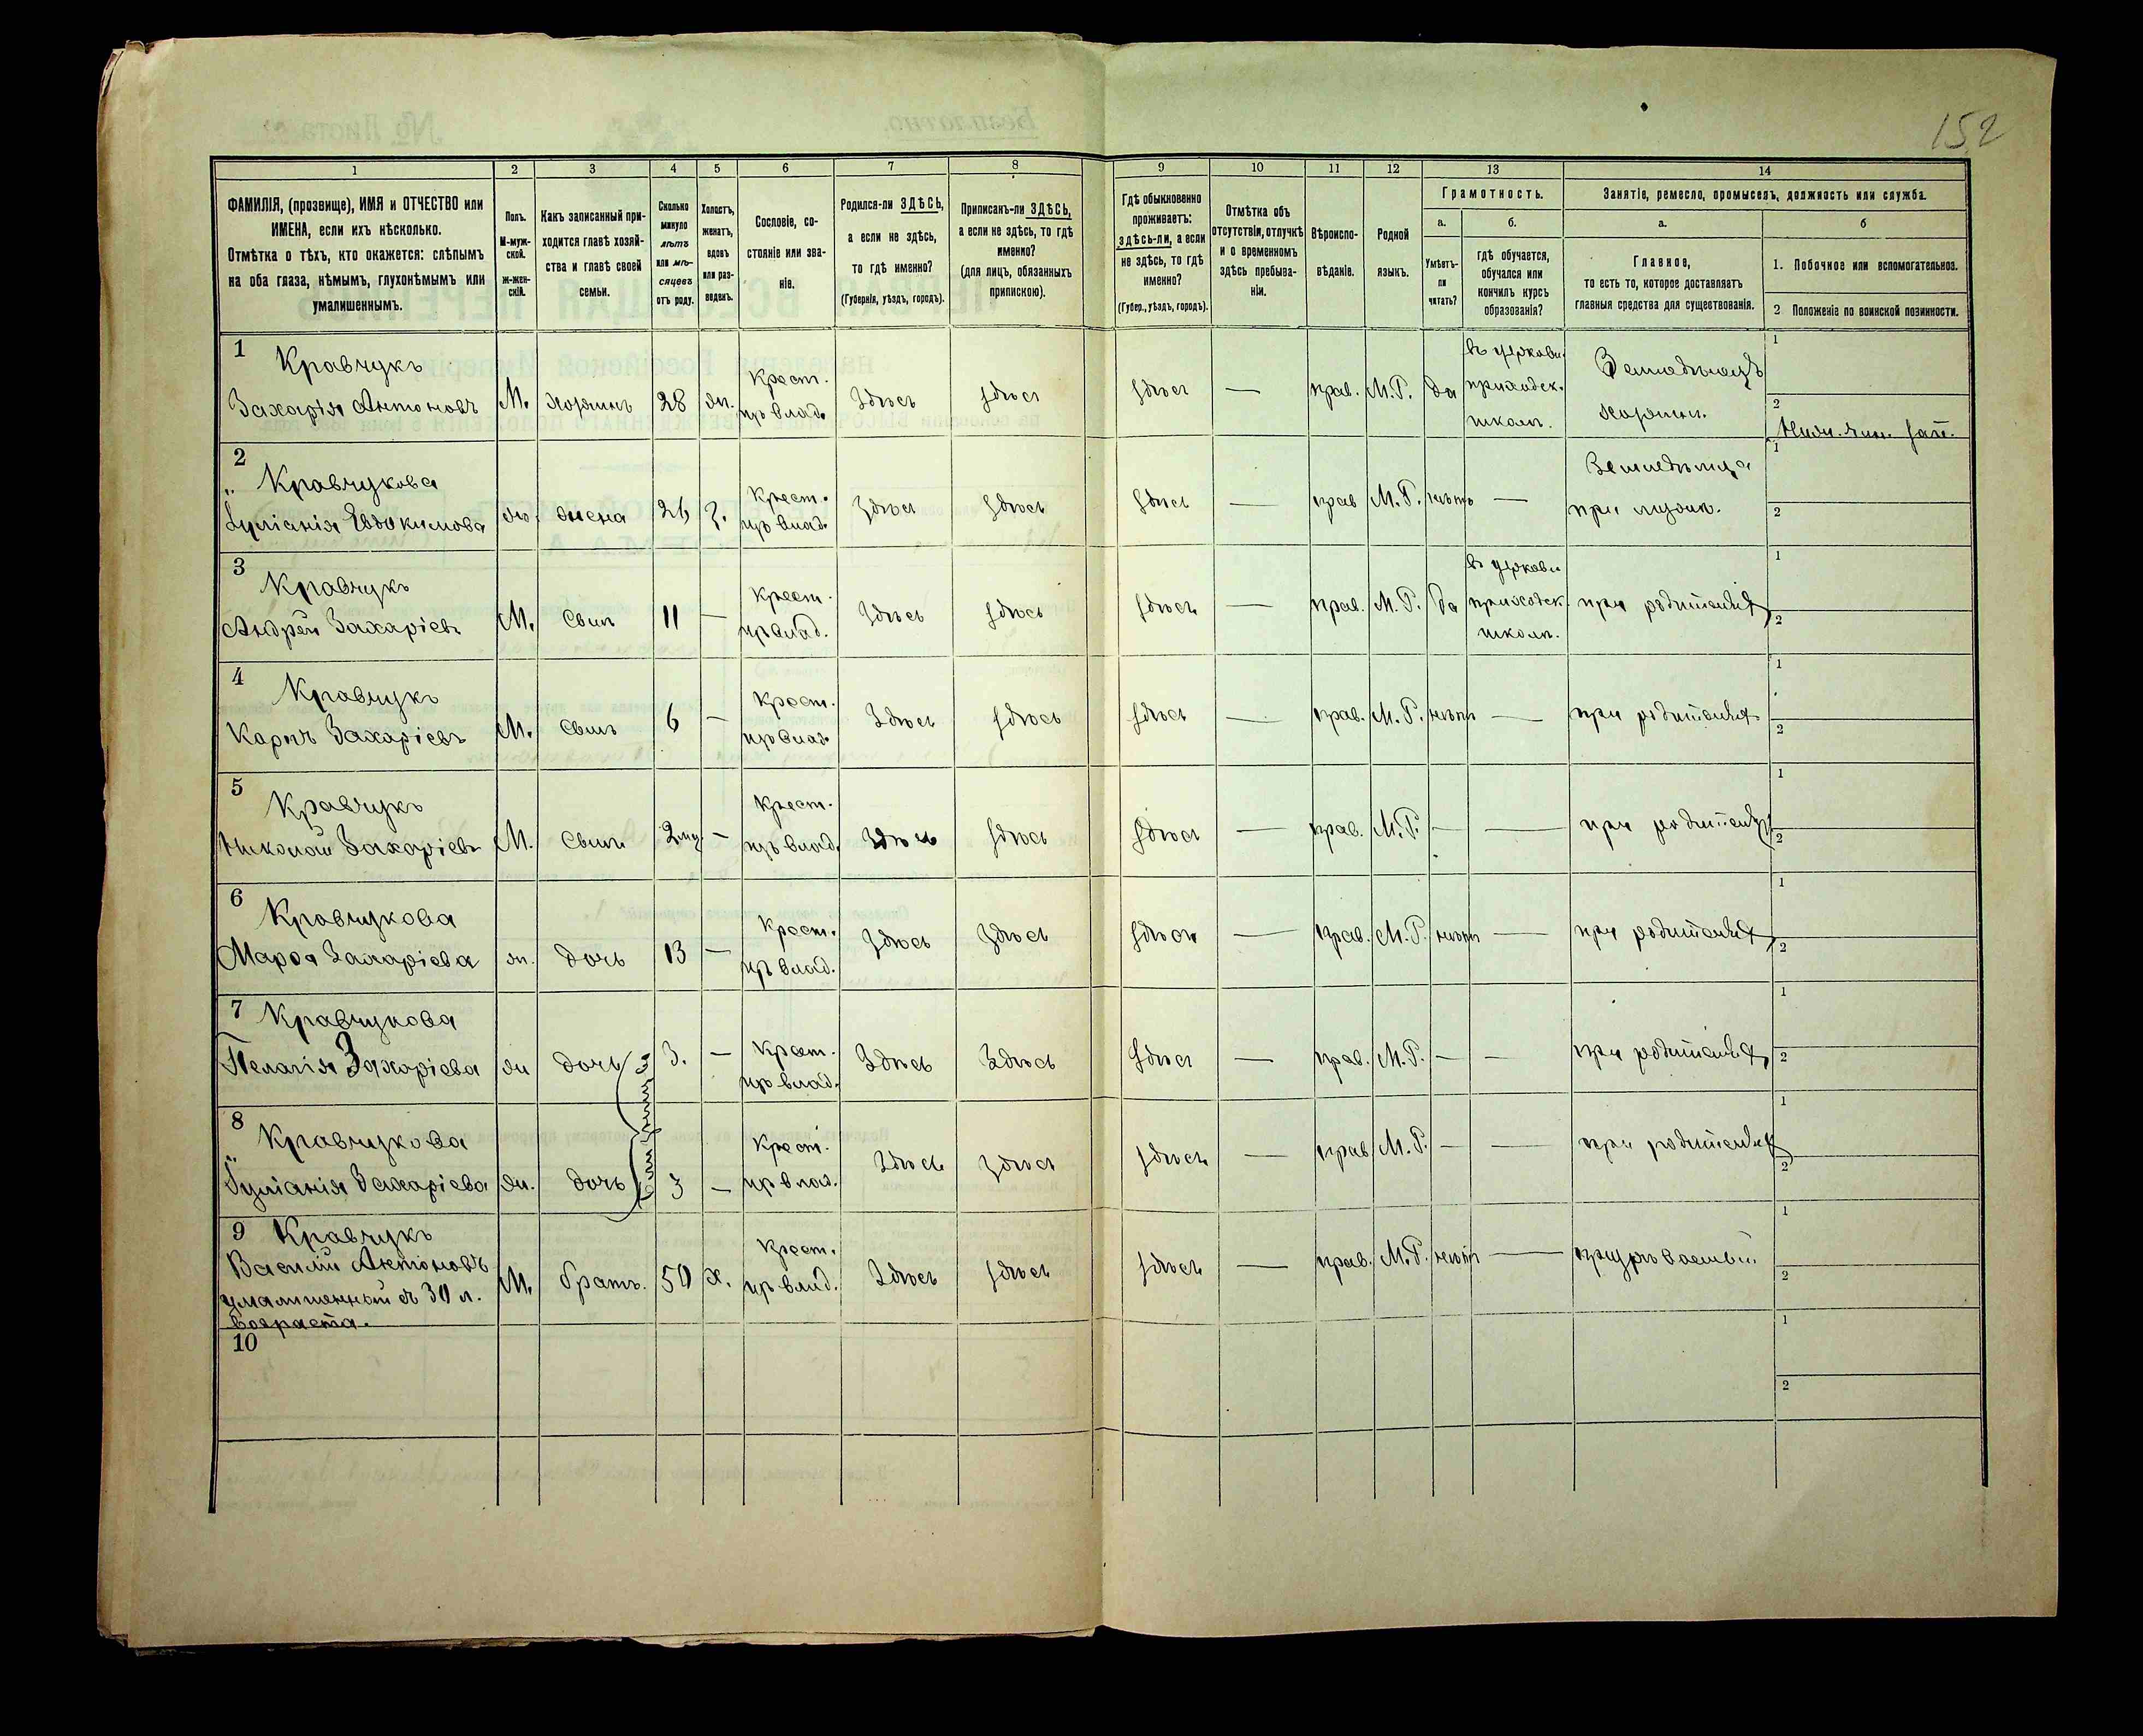 152
1 2 3 4 5 6 7 8 9 10 11 12 13 14
ФАМИЛІЯ, (прозвище), ИМЯ и ОТЧЕСТВО или
ИМЕНА, если ихъ нѣсколько.
Отмѣтка о тѣхъ, кто окажется: слѣпымъ
на оба глаза, нѣмымъ, глухонѣмымъ или
умалишеннымъ.
Полъ.
М-муж-
ской.
ж-жен-
скій.
Какъ записанный при-
ходится главѣ хозяй-
ства и главѣ своей
семьи.
Сколько
минуло
лѣтъ
или мѣ-
сяцевъ
отъ роду.
Холостъ,
женатъ,
вдовъ
или раз-
веденъ.
Сословіе, со-
стояніе или зва-
ніе.
Родился-ли ЗДѢСЬ,
а если не здѣсь,
то гдѣ именно?
(Губернія, уѣздъ, городъ).
Приписанъ-ли ЗДѢСЬ,
а если не здѣсь, то гдѣ
именно?
(для лицъ, обязанныхъ
припискою).
Гдѣ обыкновенно
проживаетъ:
здѣсь-ли, а если
не здѣсь, то гдѣ
именно?
(Губер., уѣздъ, городъ).
Отмѣтка объ
отсутствіи, отлучкѣ
и о временномъ
здѣсь пребыва-
ніи.
Вѣроиспо-
вѣданіе.
Родной
языкъ.
Грамотность.
а.
Умѣетъ-
ли
читать?
б.
гдѣ обучается,
обучался или
кончилъ курсъ
образованія?
Занятіе, ремесло, промыселъ, должность или служба.
а.
Главное,
то есть то, которое доставляетъ
главныя средства для существованія.
б
1. Побочное или вспомогательное.
2 Положеніе по воинской повинности.
1 Кравчукъ
Захарія Антоновъ М. хозяинъ 28 жн. Крест. изъ влад. Здѣсь здѣсь здѣсь — прав. М.Р. да въ церкови. приходск. школѣ. Земледѣлецъ хозяинъ. 1
2 Нижн. чин. зап.
2 Кравчукова
Іуліанія Евдокимова ж. жена 26 з. Крест. изъ влад. Здѣсь здѣсь здѣсь — прав М.Р. нѣтъ — Земледѣлица при мужѣ. 1
2
3 Кравчукъ
Андрей Захаріевъ М. сынъ 11 — Крест. изъ влад. Здѣсь здѣсь здѣсь — прав. М.Р. да въ церкови приходск. школѣ. при родителяхъ 1
2
4 Кравчукъ
Карпъ Захаріевъ М. сынъ 6 — Крест. изъ влад. Здѣсь здѣсь здѣсь — прав. М.Р. нѣтъ — при родителяхъ 1
2
5 Кравчукъ
Николай Захаріевъ М. сынъ — Крест. изъ влад. Здѣсь здѣсь здѣсь — прав. М.Р. — — при родителяхъ 1
2
6 Кравчукова
Марѳа Захаріева ж. дочь 13 — Крест. изъ влад. Здѣсь Здѣсь здѣсь — прав. М.Р. нѣтъ — при родителяхъ 1
2
7 Кравчукова
Пелагія Захаріева ж дочь 3. — Крест. изъ влад. Здѣсь Здѣсь здѣсь — прав. М.Р. — — при родителяхъ 1
2
8 Кравчукова
Іуліанія Захаріева ж. дочь 3 — Крест. изъ влад. Здѣсь здѣсь здѣсь — прав М.Р. — — при родителяхъ 1
2
9 Кравчукъ
Василій Антоновъ М. братъ. 50 х. Крест. изъ влад. Здѣсь здѣсь здѣсь — прав. М.Р. нѣтъ — призрѣваемый 1
2
умалишенный съ 30 л.
возраста.
10 1
2